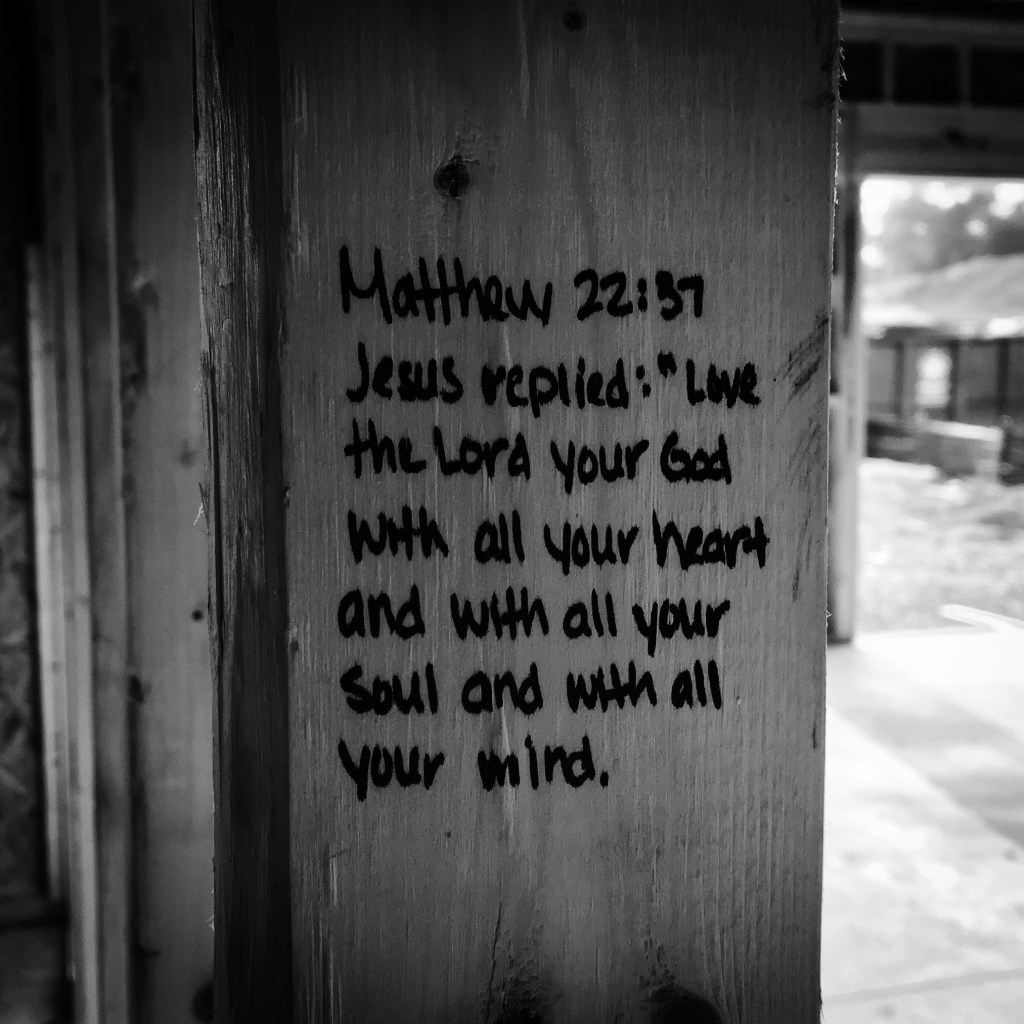 Matthew 22:37
Jesus replied: "Love
the Lord your God
with all your heart
and with all your
soul and with all
your mind.